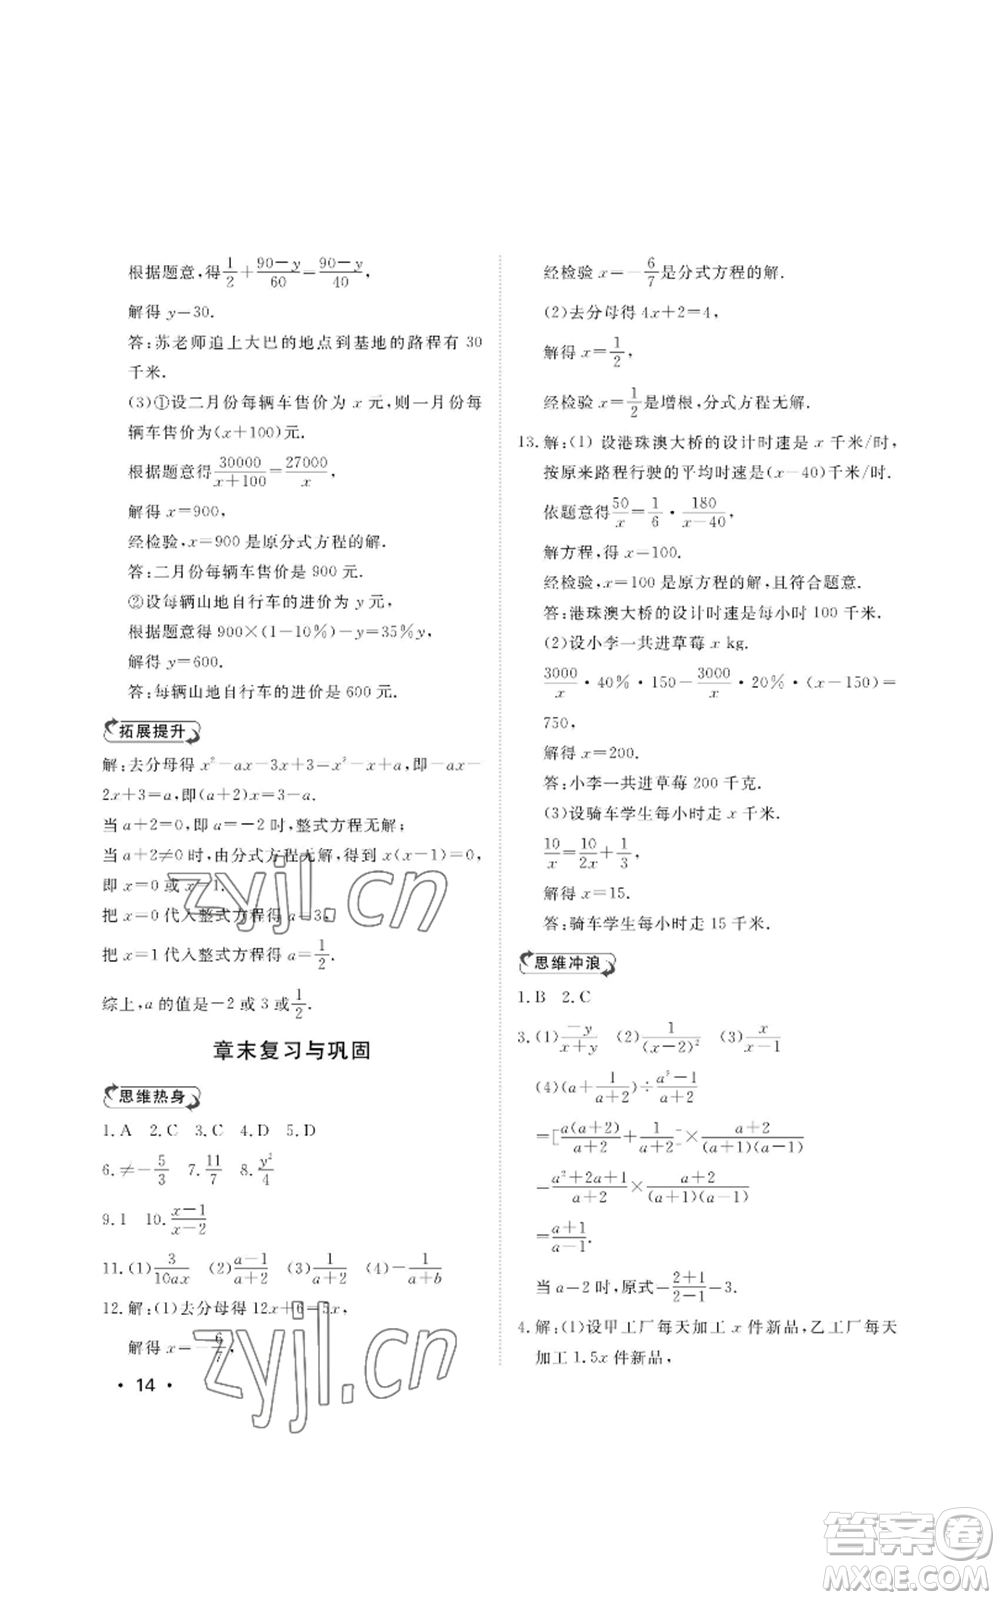 根据题意,得1/2+(90-y)/60=(90-y)/40,
解得 y-30.
答:苏老师追上大巴的地点到基地的路程有 30
千米.
(3)①设二月份每辆车售价为 x 元,则一月份每
辆车售价为(x+100)元.
根据题意得30000/(x+100)=27000/x,
解得 x=900,
经检验,x=900 是原分式方程的解.
答:二月份每辆车售价是 900 元.
②设每辆山地自行车的进价为 y 元,
根据题意得 900×(1-10%)-y=35%y,
解得 y=600.
答:每辆山地自行车的进价是 600 元.
拓展提升
解:去分母得 x²-ax-3x+3=x²-x+a,即-ax-
2x+3=a,即(a+2)x=3-a.
当 a+2=0,即 a=-2 时,整式方程无解;
当 a+2≠0 时,由分式方程无解,得到 x(x-1)=0,
即 x=0 或 x=1.
把 x=0 代入整式方程得 a=3,
把 x=1 代入整式方程得 a=1/2.
综上,a 的值是-2 或 3 或1/2.
章末复习与巩固
思维热身
1.A 2.C 3.C 4.D 5.D
6.≠-5/3 7.11/7 8.y²/4
9.1 10.(x-1)/(x-2)
11.(1)3/(10ax) (2)(a-1)/(a+2) (3)1/(a+2) (4)-1/(a+b)
12.解:(1)去分母得 12x+6=5x,
解得 x=-6/7,
• 14 •
经检验 x=-6/7是分式方程的解.
(2)去分母得 4x+2=4,
解得 x=1/2,
经检验 x=1/2是增根,分式方程无解.
13.解:(1) 设港珠澳大桥的设计时速是 x 千米/时,
按原来路程行驶的平均时速是(x-40)千米/时.
依题意得50/x=1/6·180/(x-40),
解方程,得 x=100.
经检验,x=100 是原方程的解,且符合题意.
答:港珠澳大桥的设计时速是每小时 100 千米.
(2)设小李一共进草莓 x kg.
3000/x·40%·150-3000/x·20%·(x-150)=
750,
解得 x=200.
答:小李一共进草莓 200 千克.
(3)设骑车学生每小时走 x 千米.
10/x=10/2x+1/3,
解得 x=15.
答:骑车学生每小时走 15 千米.
思维冲浪
1.B 2.C
3.(1)-y/(x+y) (2)1/(x-2)² (3)x/(x-1)
(4)(a+1/(a+2))÷(a²-1)/(a+2)
=[a(a+2)/(a+2)+1/(a+2)]×(a+2)/((a+1)(a-1))
=(a²+2a+1)/(a+2)×(a+2)/((a+1)(a-1))
=(a+1)/(a-1).
当 a-2 时,原式-(2+1)/(2-1)-3.
4.解:(1)设甲工厂每天加工 x 件新品,乙工厂每天
加工 1.5x 件新品,
zyjl.cn
zyjl.cn
答案圈
MXQE.COM